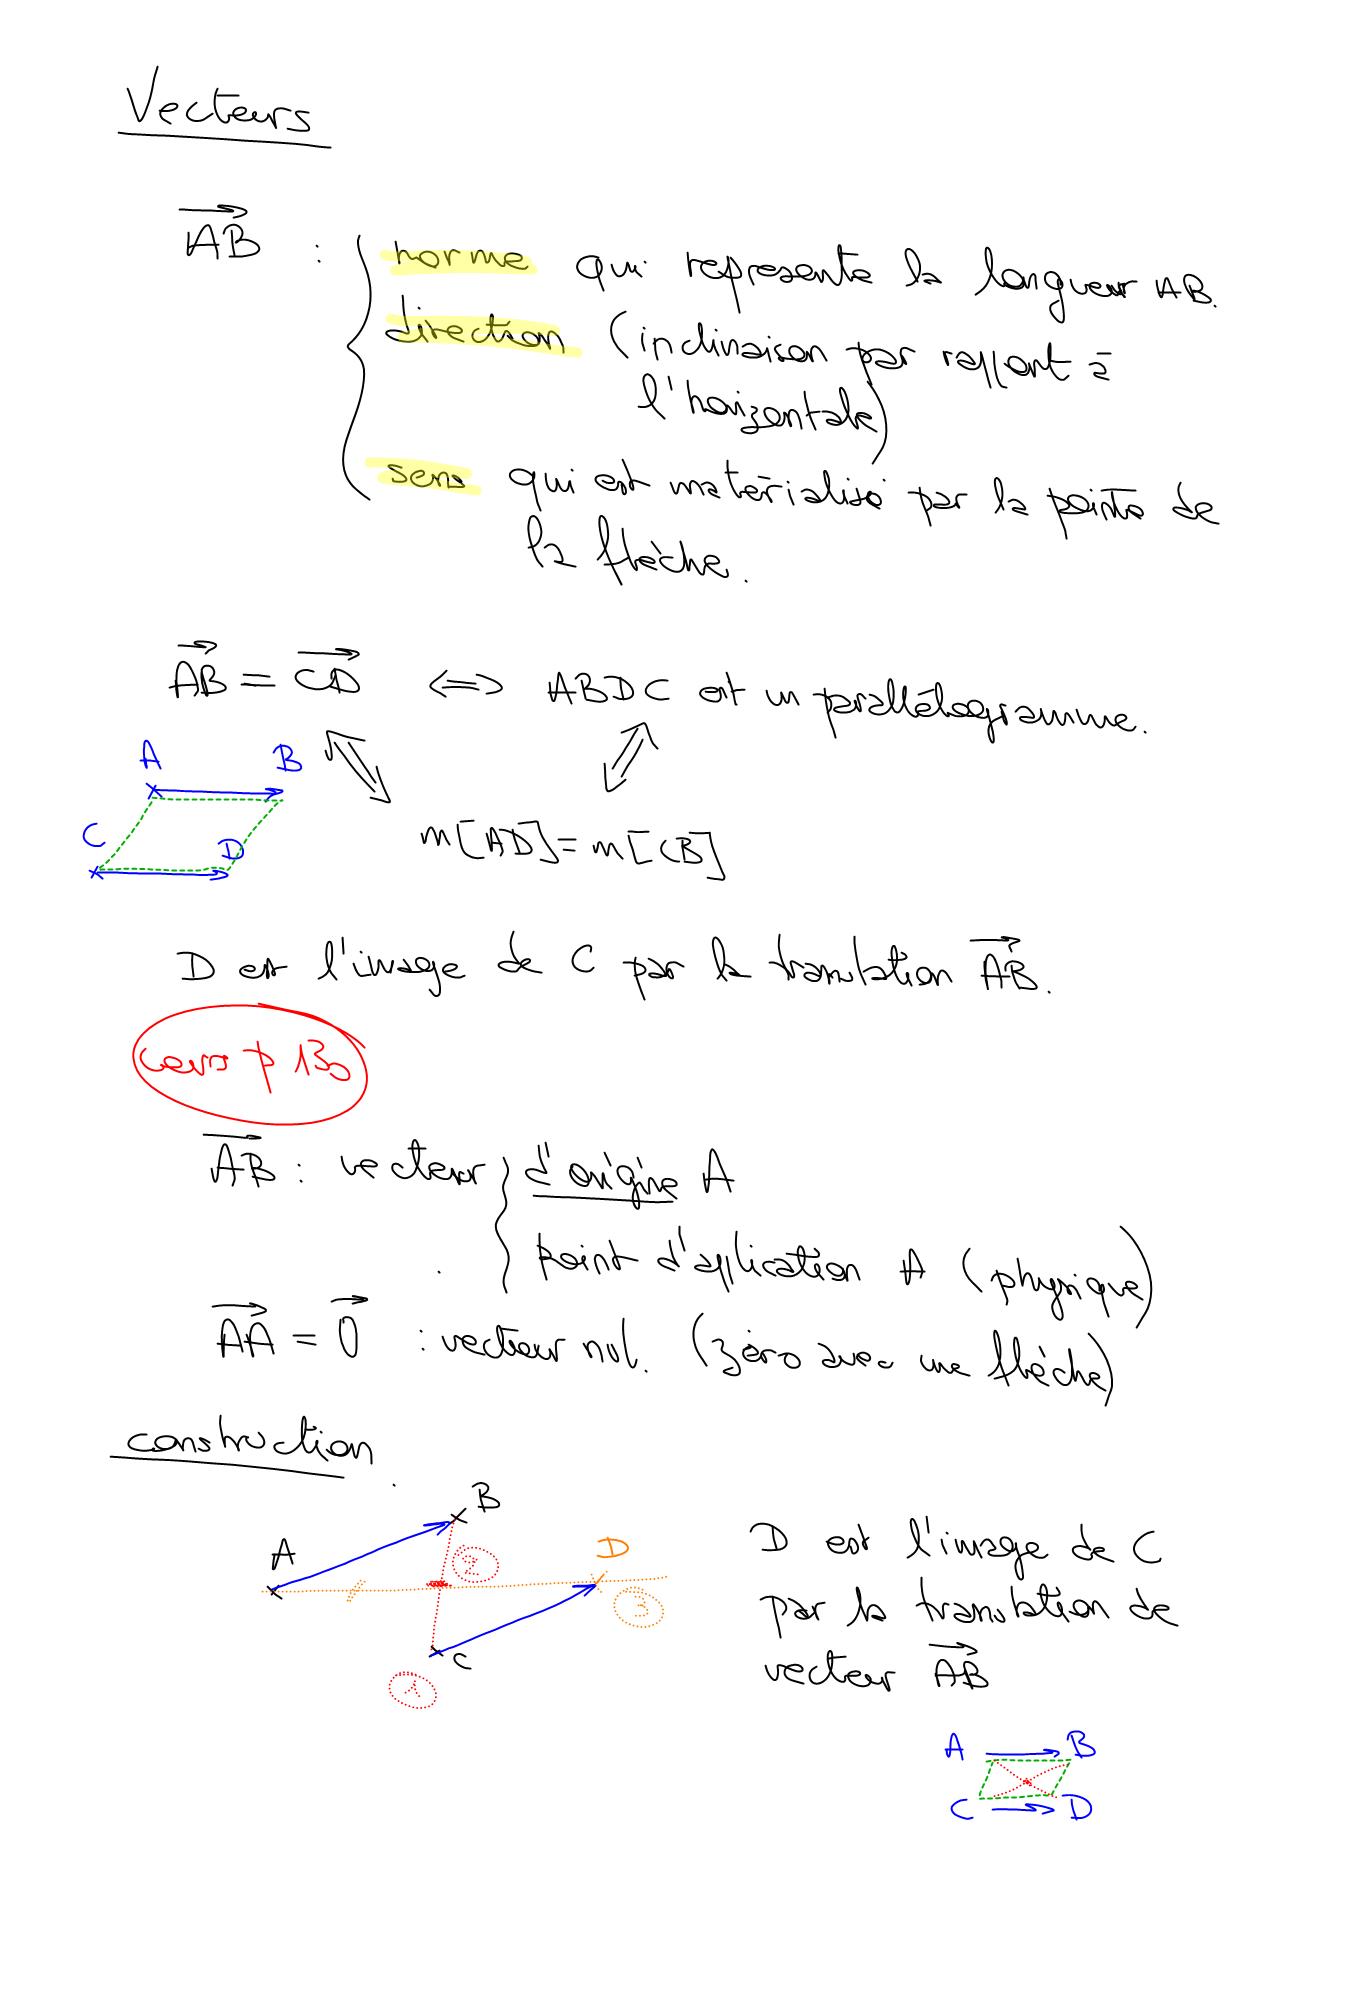 Vecteurs
$\overrightarrow{AB}$ : { norme qui représente la longueur AB.
direction (inclinaison par rapport à
l'horizontale)
sens qui est matérialisé par la pointe de
la flèche.
$\overrightarrow{AB} = \overrightarrow{CD}$ ⟺ ABDC est un parallélogramme.
A B
C D
m[AD]=m[CB]
D est l'image de C par la translation $\overrightarrow{AB}$.
cours p 130
$\overrightarrow{AB}$ : vecteur { d'origine A
point d'application A (physique)
$\overrightarrow{AA} = \overrightarrow{0}$ : vecteur nul. (zéro avec une flèche)
construction
B
A 2 D
3
C
1
D est l'image de C
par la translation de
vecteur $\overrightarrow{AB}$
A B
C D